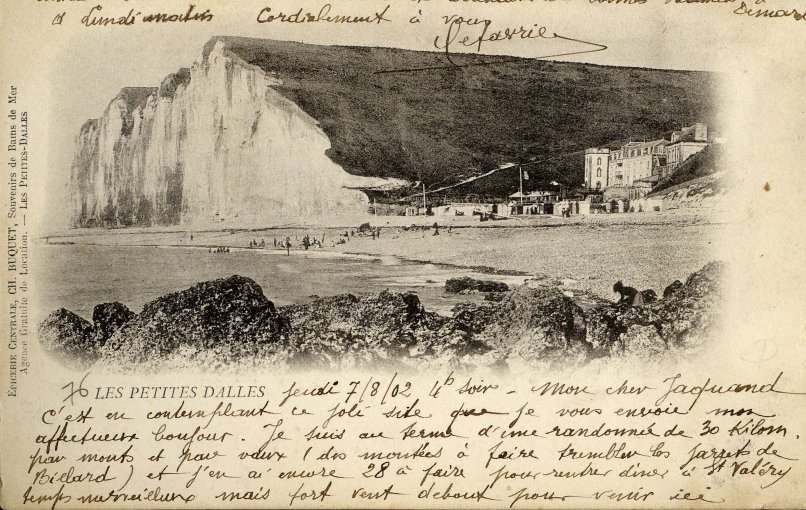 à Lundi matin Cordialement à vous
Lefarrie
ÉPICERIE CENTRALE, CH. BUQUET, Souvenirs de Bains de Mer
Agence Gratuite de Location. — LES PETITES-DALLES
76 LES PETITES DALLES Jeudi 7/8/02 4h soir - Mon cher Jacquand
C'est en contemplant ce joli site que je vous envoie mon
affectueux bonjour. Je suis au terme d'une randonnée de 30 Kilom.
par monts et par vaux (des montées à faire trembler les jarrets de
Billard) et j'en ai encore 28 à faire pour rentrer diner à St Valéry
temps merveilleux mais fort vent debout pour venir ici